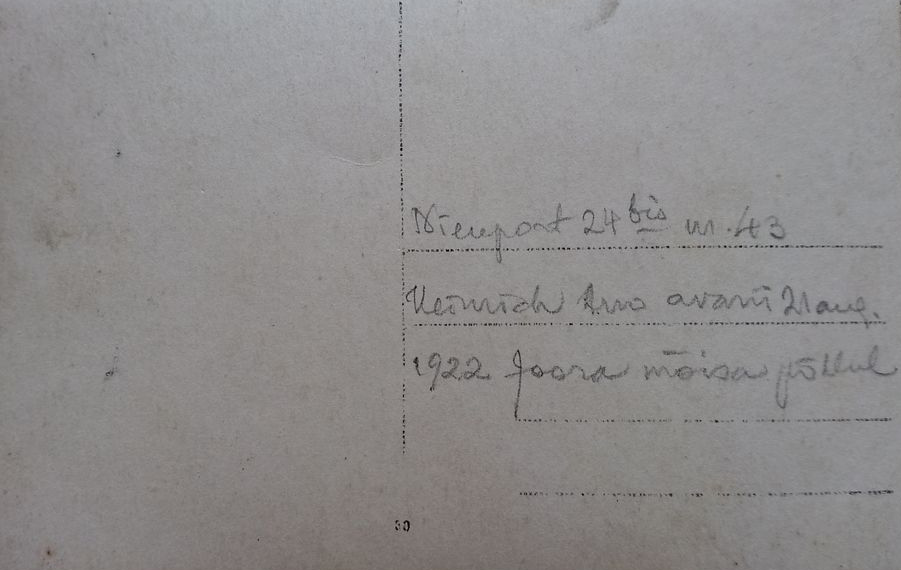 Nieuport 24 bis nr. 43
Heinrich Arro avarii 21 aug.
1922 Joora mõisa põllul
30